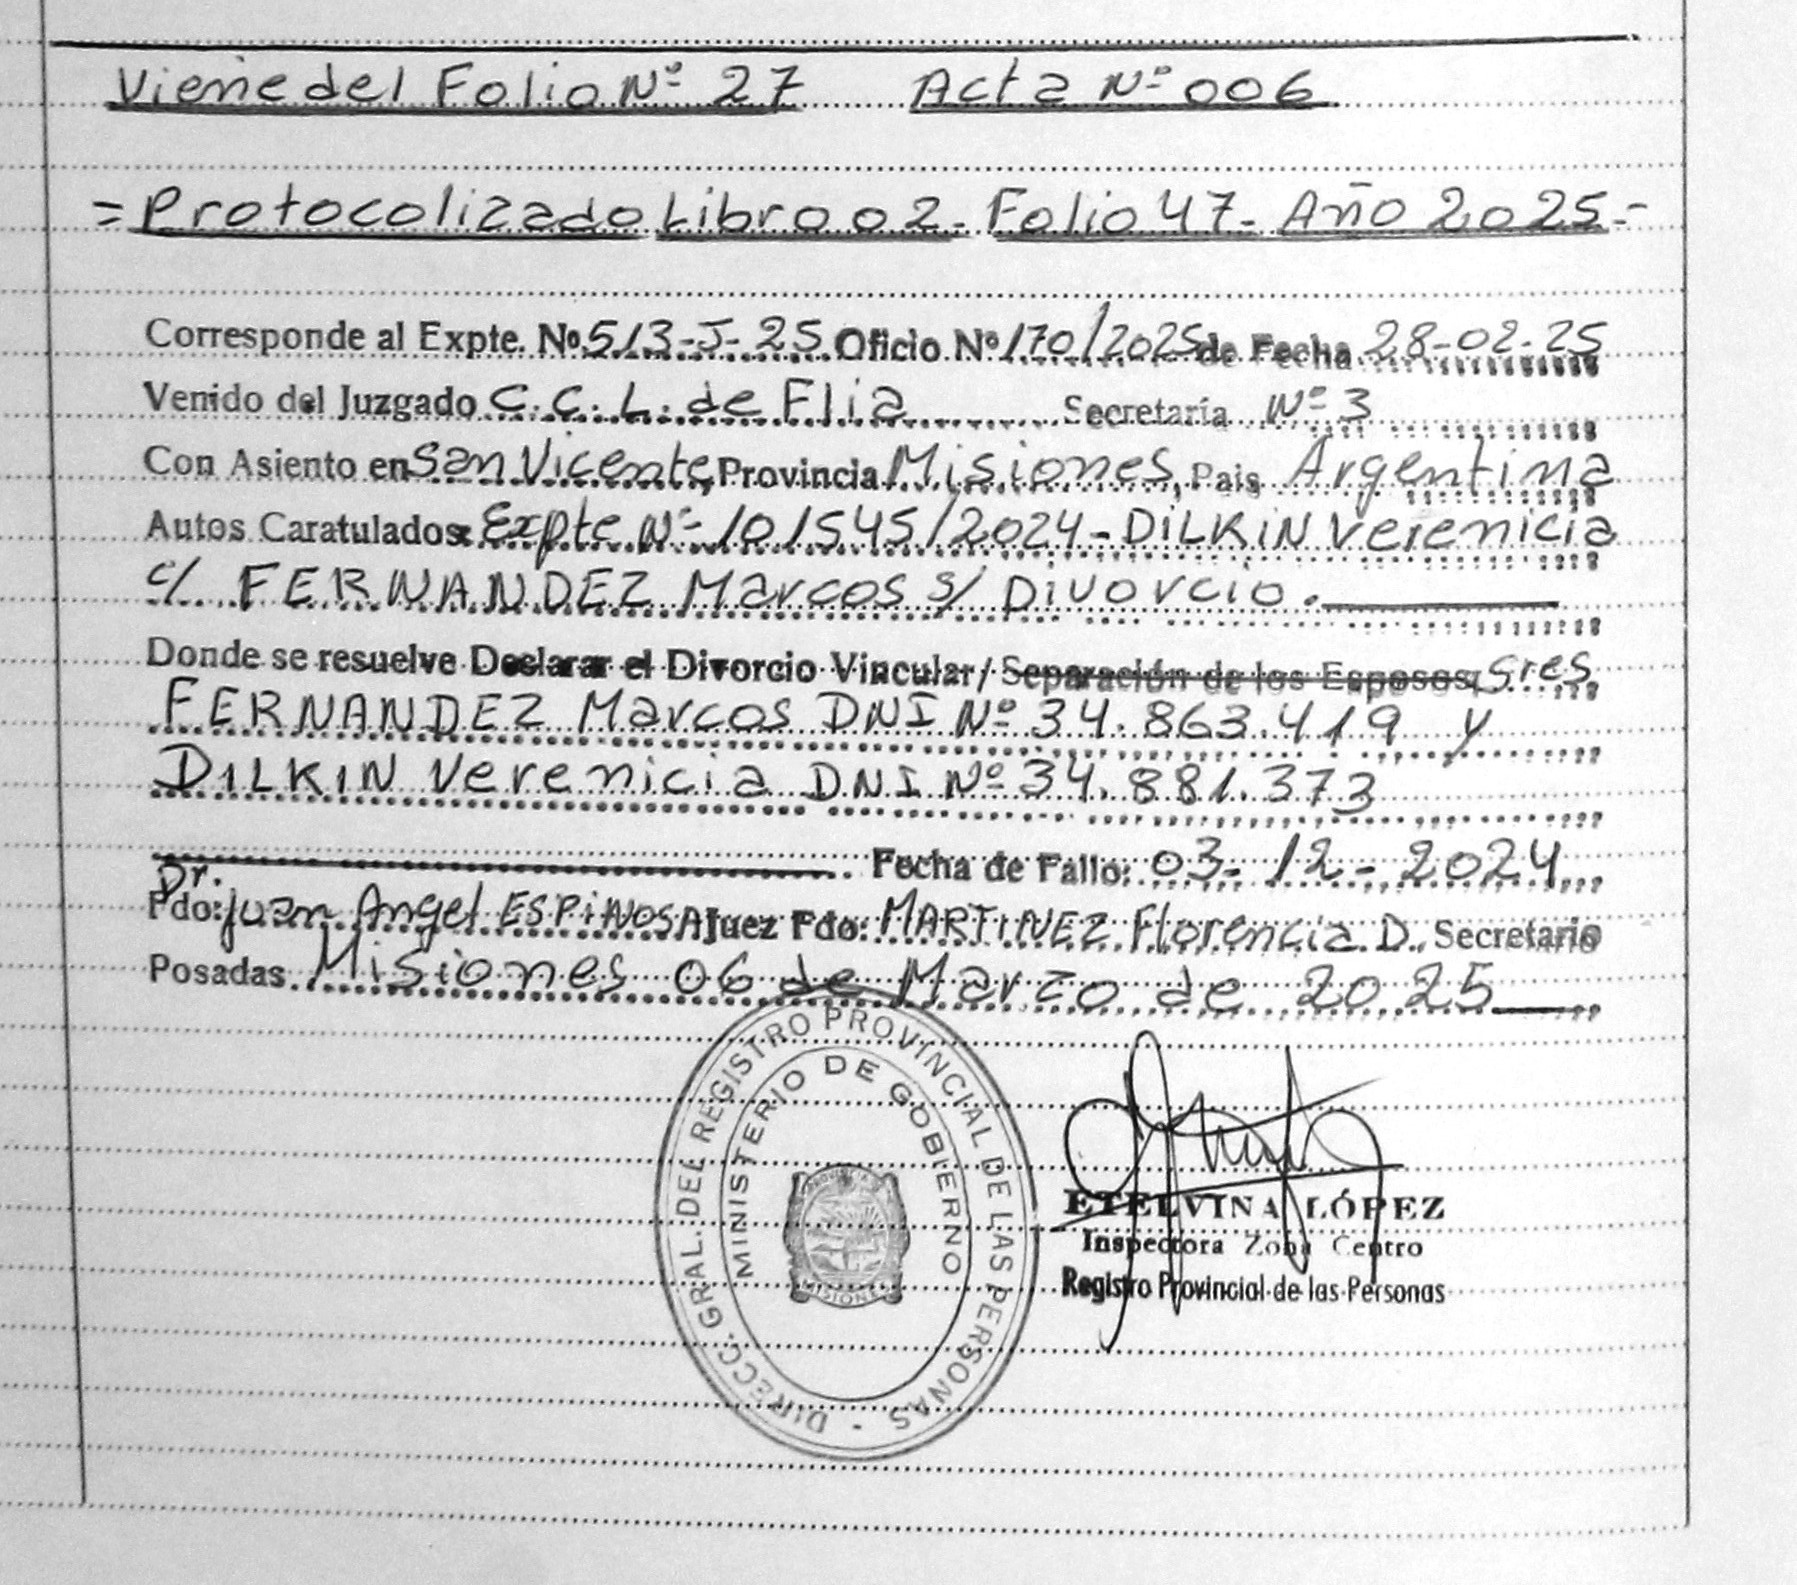 Viene del Folio Nº 27 Acta Nº 006
= Protocolizado Libro 02 - Folio 47 - Año 2025 =
Corresponde al Expte. Nº 513-J-25 Oficio Nº 170/2025 de Fecha 28-02-25
Venido del Juzgado C.C.L. de Flia Secretaría Nº 3
Con Asiento en San Vicente, Provincia Misiones, Pais Argentina
Autos Caratulados: Expte Nº 101545/2024 - DILKIN Verenicia
c/ FERNANDEZ Marcos s/ Divorcio.
Donde se resuelve Declarar el Divorcio Vincular/ Separación de los Esposos; Sres
FERNANDEZ Marcos DNI Nº 34.863.419 y
DILKIN Verenicia DNI Nº 34.881.373
Fecha de Fallo: 03-12-2024
Dr.
Fdo: Juan Angel ESPINOSA Juez Fdo: MARTINEZ Florencia D. Secretario
Posadas Misiones 06 de Marzo de 2025
DIRECC. GRAL. DEL REGISTRO PROVINCIAL DE LAS PERSONAS -
MINISTERIO DE GOBIERNO
PROVINCIA DE
MISIONES
ETELVINA LÓPEZ
Inspectora Zona Centro
Registro Provincial de las Personas